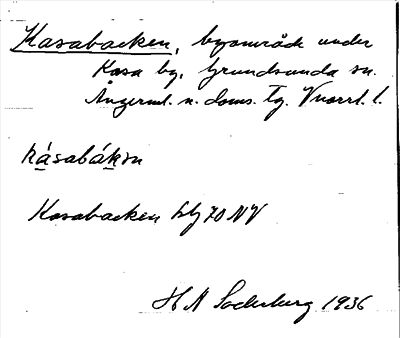 Kasabacken, byområde under
Kasa by, Grundsunda sn.
Ångerml. n. doms. Tg. Vnorrl. l.
kásabákɷn
Kasabacken blj 70 NV
H A Söderberg 1936